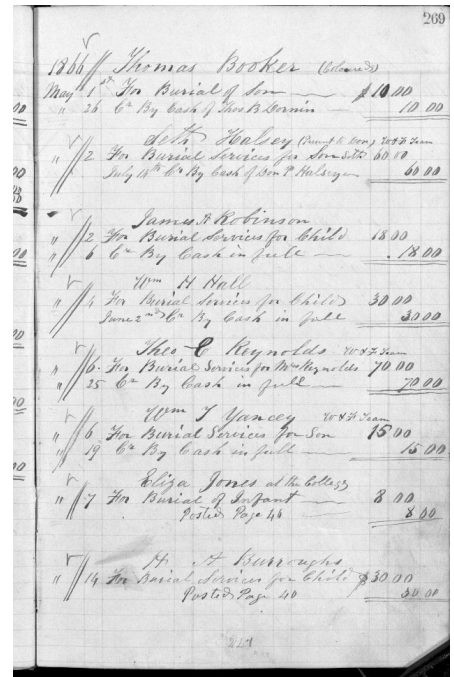 269
1866 Thomas Booker (Coloured)
May 1st For Burial of Son $10 00
" 26 Cr By Cash of Thos B Dornin 10 00
Seth Halsey W & F Team
" 2 For Burial Services for Son Seth 60 00
July 14th Cr By Cash of Don P Halsey 60 00
James A Robinson
" 2 For Burial Services for Child 18 00
" 6 Cr By Cash in full 18 00
Wm H Hall
" 4 For Burial Services for Child 30 00
June 2nd Cr By Cash in full 30 00
Theo C Reynolds W & F Team
" 6 For Burial Services for Mrs Reynolds 70 00
" 25 Cr By Cash in full 70 00
Wm T Yancey W & F Team
" 6 For Burial Services for Son 15 00
" 19 Cr By Cash in full 15 00
Eliza Jones at the College
" 7 For Burial of Infant 8 00
Posted Page 46 8 00
H A Burroughs
" 14 For Burial Services for Child $30 00
Posted Page 40 30 00